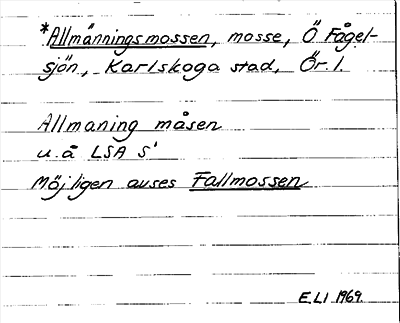 *Allmänningsmossen, mosse, Ö Fågel-
sjön, Karlskoga stad, Ör. l.
Allmaning måsen
u.å LSA S'
Möjligen avses Fallmossen
E.L.I 1969.